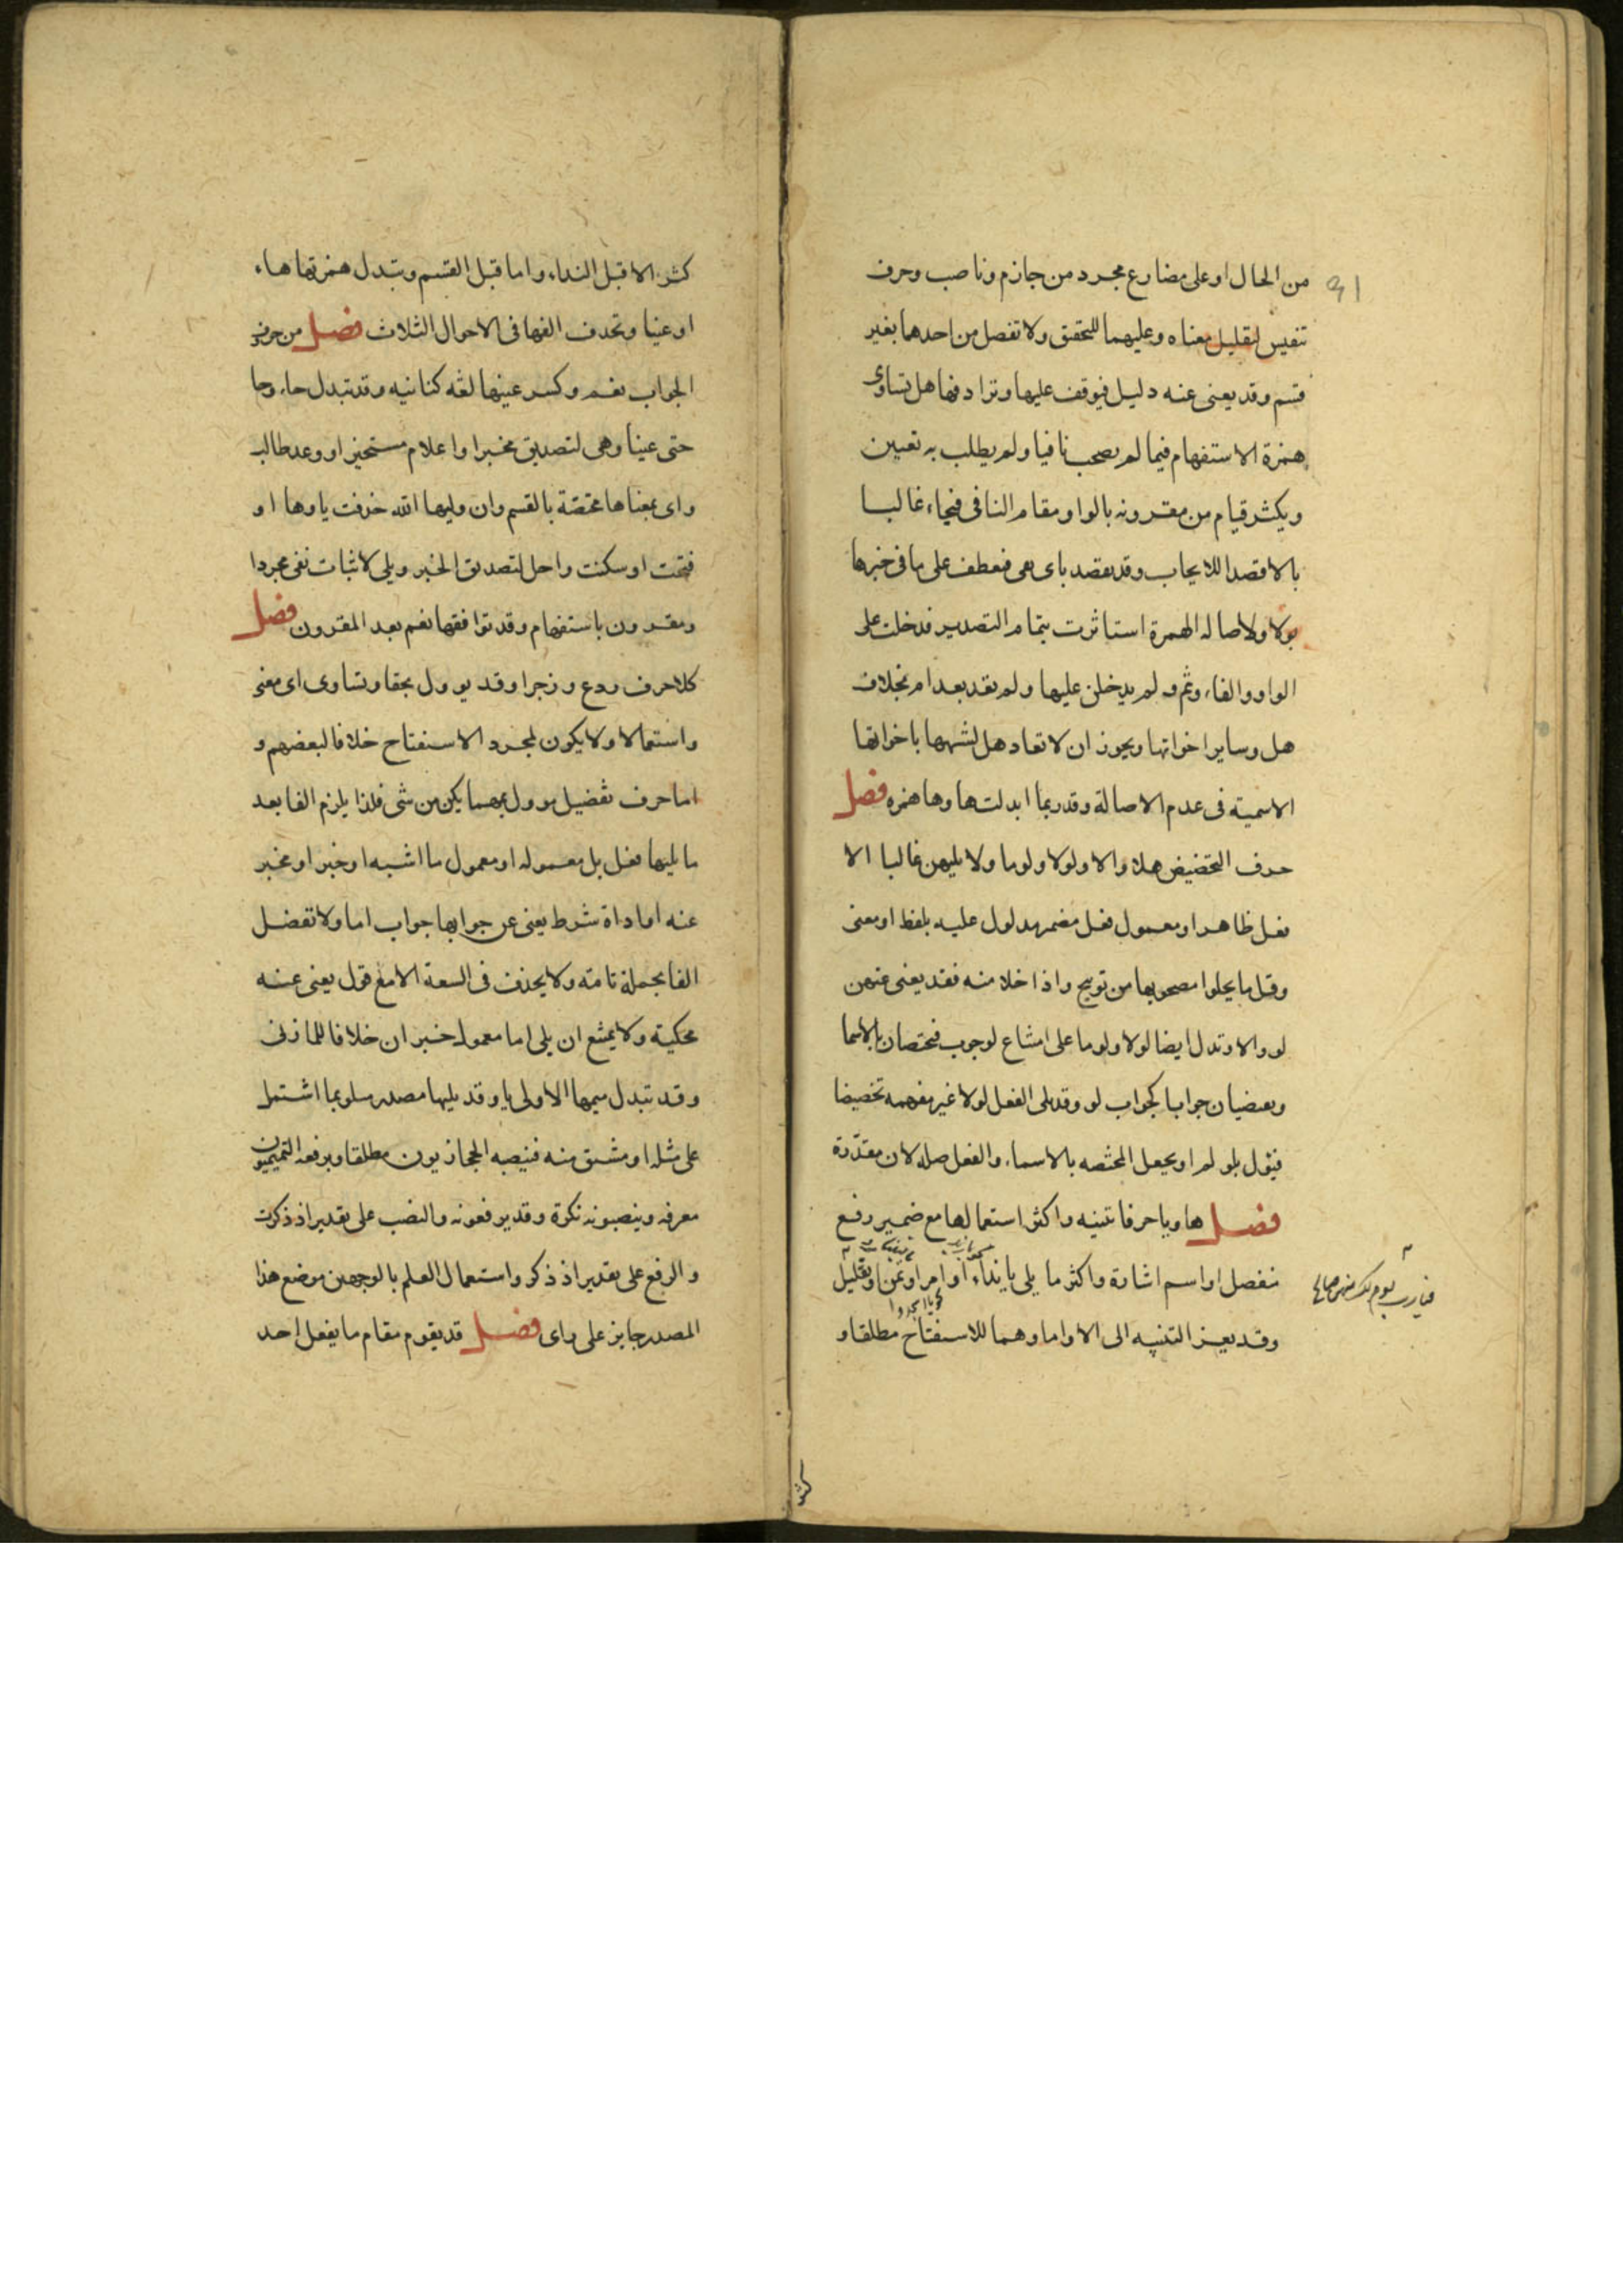 من الحال او على مضارع مجرد من جازم وناصب وحرف
تنفيس لتقليل معناه وعليهما للتحقق ولا تفصل من احدهما بغير
قسم وقد يغنى عنه دليل فيوقف عليها وترادفها هل تساوى
همزة الاستفهام فيما لم يصحب نافيا ولم يطلب به تعيين
ويكثر قيام من مقرونه بالواو مقام النافى فيجاء غالبا
بالا قصدا للايجاب وقد يقصد باى نفى فعطف على ما فى خبرها
بولا ولاصاله الهمزة استاثرت بتمام التصدير فدخلت على
الواو والفاء وثم ولم يدخلن عليها ولم تعد بعد ام بخلاف
هل وساير اخواتها ويجوز ان لا تعاد هل لشبهها باخواتها
الاسمية فى عدم الاصالة وقد ربما ابدلت هاوها همزه فصل
حرف التحضيض هلا والا ولولا ولوما ولا يليهن غالبا الا
فعل ظاهر او معمول فعل مضمر مدلول عليه بلفظ او معنى
وقل ما يخلوا مصحوبها من توبيخ واذا خلا منه فقد يغنى عنهن
لو والا وتدل ايضا لولا ولوما على امتناع لوجوب فيختصان بالاسما
ويقضيان جوابا كجواب لو وقد يلى الفعل لولا غير مفهمه تحضيضا
فيؤل بلو لم او يجعل المختصه بالاسماء والفعل صله لان مقدّرة
فصل ها ويا حرفا تنبيه واكثر استعمالها مع ضمير رفع
منفصل او اسم اشارة واكثر ما يلى يا نداء او امر او تمن او تقليل
وقد يعز التنبيه الى الا واما وهما للاستفتاح مطلقا و
كثر الا قبل النداء واما قبل القسم وتبدل همزتها هاء
او عينا وتحذف الفها فى الاحوال الثلاث فصل من حروف
الجواب نعم وكسر عينها لغه كنانيه وقد تبدل حاء وحا
حتى عينا وهى لتصديق مخبر او اعلام مستخبر او وعد طالب
واى بمعناها مختصة بالقسم وان وليها الله حذفت ياوها او
فتحت او سكنت واجل لتصديق الخبر وبلى لاثبات نفى مجردا
ومقرون باستفهام وقد توافقها نعم بعد المقرون فصل
كلا حرف ردع وزجر وقد يوول بحقا وتساوى اى معنى
واستعمالا ولا يكون لمجرد الاستفتاح خلافا لبعضهم و
اما حرف تفضيل موول بمهما يكن من شى فلذا يلزم الفا بعد
ما يليها فعل بل معموله او معمول ما اشبه او خبر او مخبر
عنه او اداة شرط يغنى عن جوابها جواب اما ولا تفصل
الفا بجملة تامة ولا يحذف فى السعة الا مع قول يغنى عنه
محكيه ولا يمتنع ان يلى اما معمول خبر ان خلافا للمازنى
وقد تبدل ميمها الاولى يا وقد يليها مصدر متلو بما اشتمل
على مثله او مشتق منه فينصبه الحجازيون مطلقا ويرفعه التميميون
معرفه وينصبونه نكرة وقد يرفعونه والنصب على تقدير اذ ذكرت
والرفع على تقدير اذ ذكر واستعمال العلم بالوجهين موضع هذا
المصدر جايز على راى فصل قد يقوم مقام ما يفعل احد